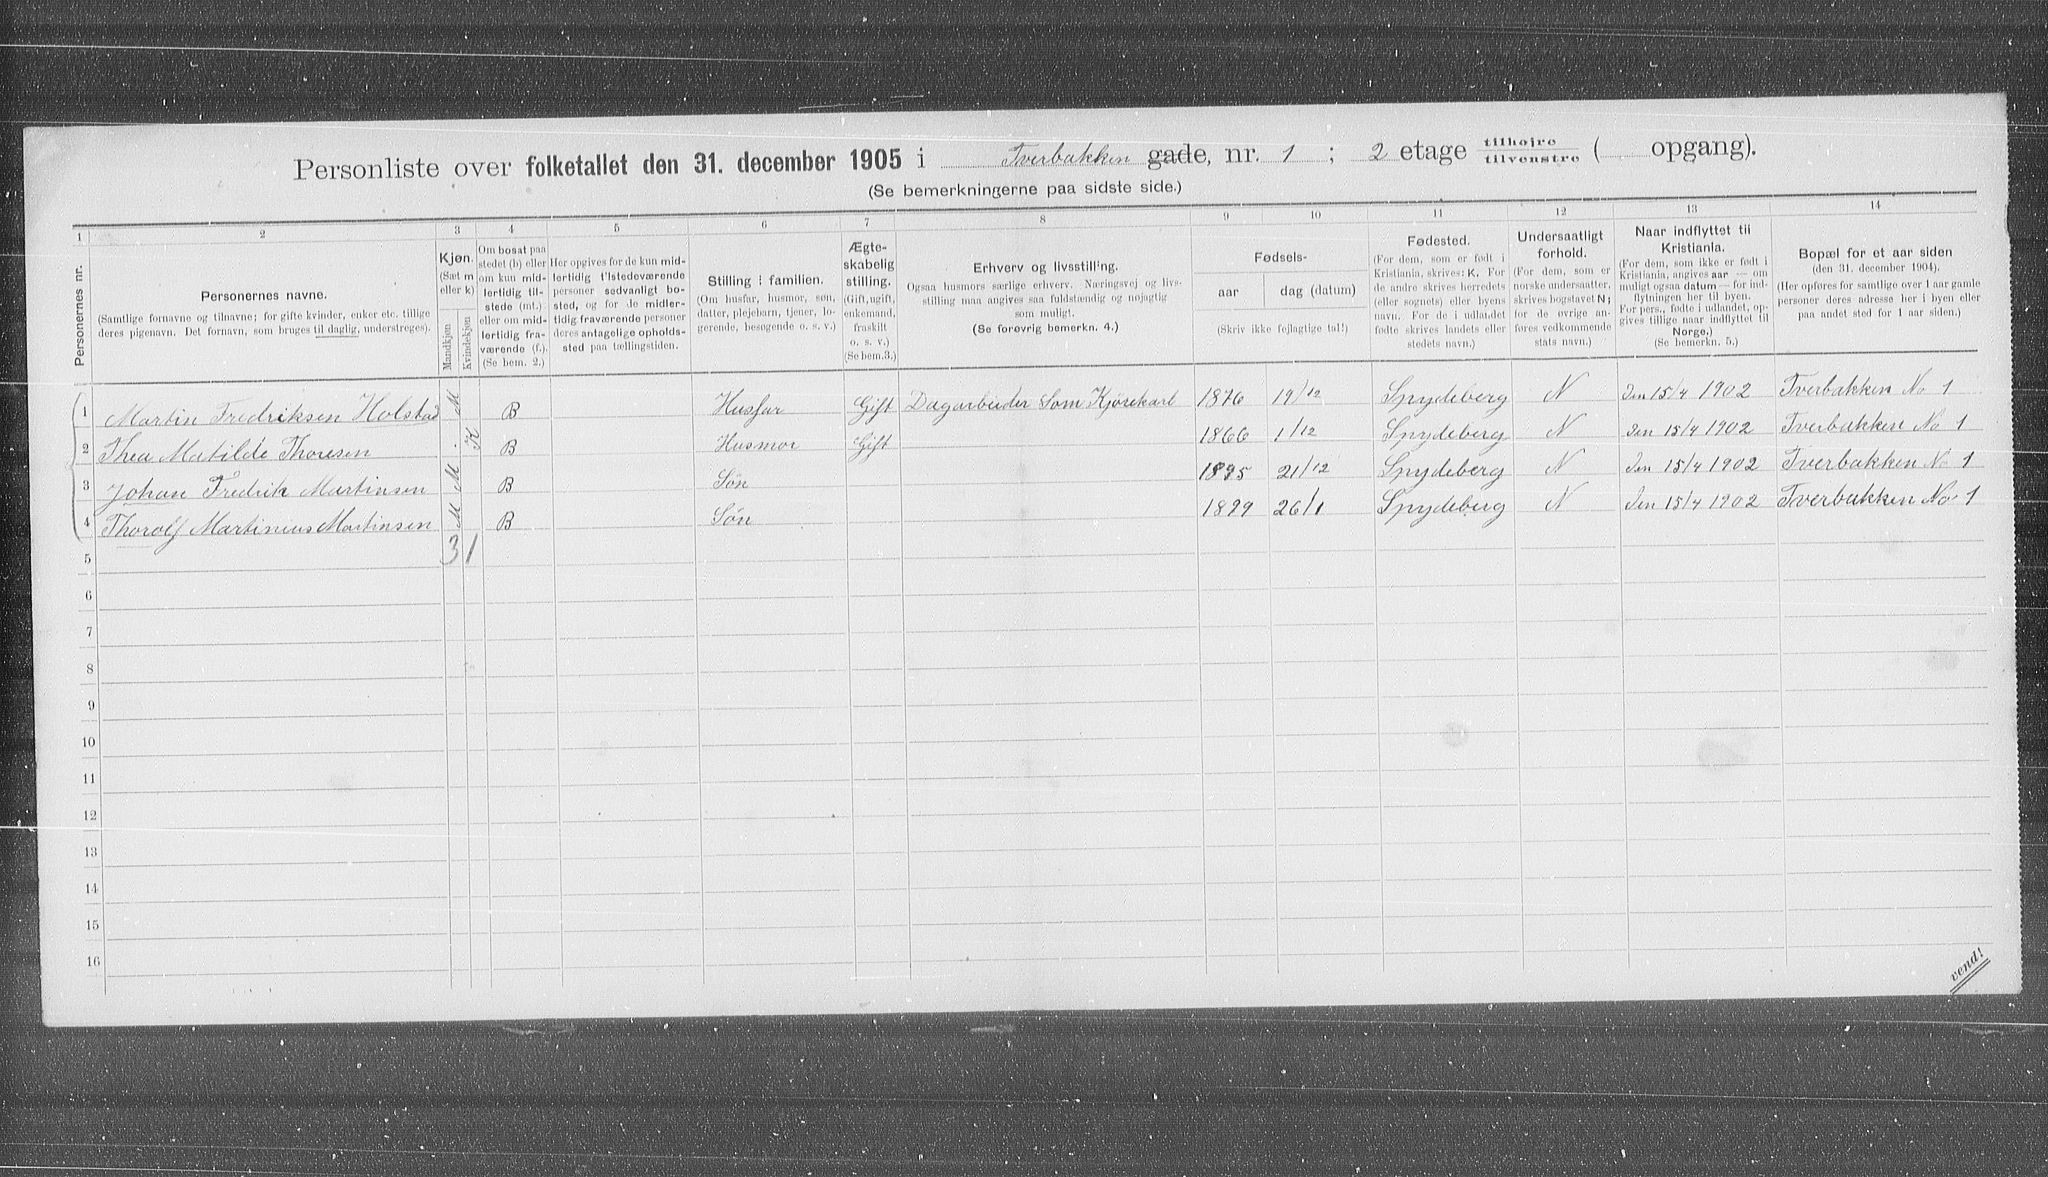 Personliste over folketallet den 31. december 1905 i Tverbakken gade, nr. 1 ; 2 etage tilhøjre/tilvenstre ( opgang).
(Se bemerkningerne paa sidste side.)
1 2 3 4 5 6 7 8 9 10 11 12 13 14
Personernes nr.
Personernes navne.
(Samtlige fornavne og tilnavne; for gifte kvinder, enker etc. tillige
deres pigenavn. Det fornavn, som bruges til daglig, understreges).
Kjøn.
(Sæt m
eller k)
Mandkjøn
Kvindekjøn
Om bosat paa
stedet (b) eller
om kun mid-
lertidig til-
stede (mt.)
eller om mid-
lertidig fra-
værende (f.).
(Se bem. 2.)
Her opgives for de kun mid-
lertidig tilstedeværende
personer sedvanligt bo-
sted, og for de midler-
tidig fraværende personer
deres antagelige opholds-
sted paa tællingstiden.
Stilling i familien.
(Om husfar, husmor, søn,
datter, plejebarn, tjener, lo-
gerende, besøgende o. s. v.)
Ægte-
skabelig
stilling.
(Gift, ugift,
enkemand,
fraskilt
o. s. v.)
(Se bem.3.)
Erhverv og livsstilling.
Ogsaa husmors særlige erhverv. Næringsvej og livs-
stilling maa angives saa fuldstændig og nøjagtig
som muligt.
(Se forøvrig bemerkn. 4.)
Fødsels-
aar dag (datum)
(Skriv ikke fejlagtige tal!)
Fødested.
(For dem, som er født i
Kristiania, skrives: K. For
de andre skrives herredets
(eller sognets) eller byens
navn. For de i udlandet
fødte skrives landets eller
stedets navn.)
Undersaatligt
forhold.
(For dem, som er
norske undersaatter,
skrives bogstavet N;
for de øvrige an-
føres vedkommende
stats navn.)
Naar indflyttet til
Kristiania.
(For dem, som ikke er født i
Kristiania, angives aar — om
muligt ogsaa datum — for ind-
flytningen her til byen.
For pers., fødte i udlandet, op-
gives tillige naar indflyttet til
Norge.)
(Se bemerkn. 5.)
Bopæl for et aar siden
(den 31. december 1904).
(Her opføres for samtlige over 1 aar gamle
personer deres adresse her i byen eller
paa andet sted for 1 aar siden.)
1 Martin Fredriksen Holstad M B Husfar Gift Dagarbeider Som Kjørekarl 1876 19/12 Spydeberg N Den 15/4 1902 Tverbakken No 1
2 Thea Matilde Thoresen K B Husmor Gift 1866 1/12 Spydeberg N Den 15/4 1902 Tverbakken No 1
3 Johan Fredrik Martinsen M B Søn 1895 21/12 Spydeberg N Den 15/4 1902 Tverbakken No 1
4 Thorolf Martinius Martinsen M B Søn 1899 26/1 Spydeberg N Den 15/4 1902 Tverbakken No 1
5 3 1
6
7
8
9
10
11
12
13
14
15
16
vend!